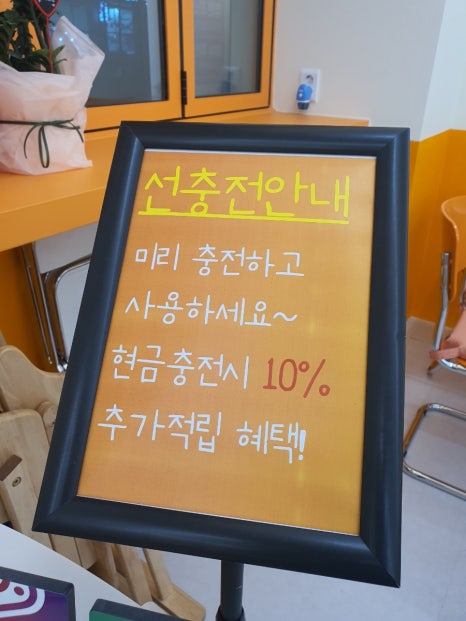 선충전안내
미리 충전하고
사용하세요~
현금충전시 10%
추가적립 혜택!